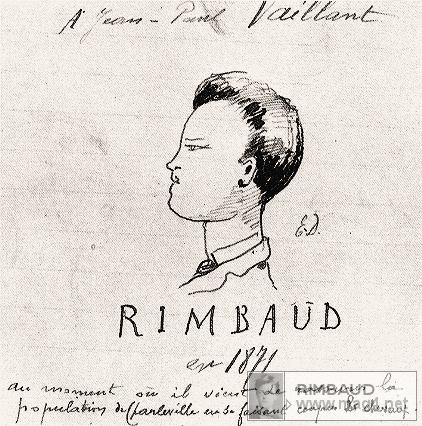 A Jean-Paul Vaillant
E.D.
RIMBAUD
en 1871
au moment où il vient de la
population de Charleville en se faisant couper les cheveux.
RIMBAUD